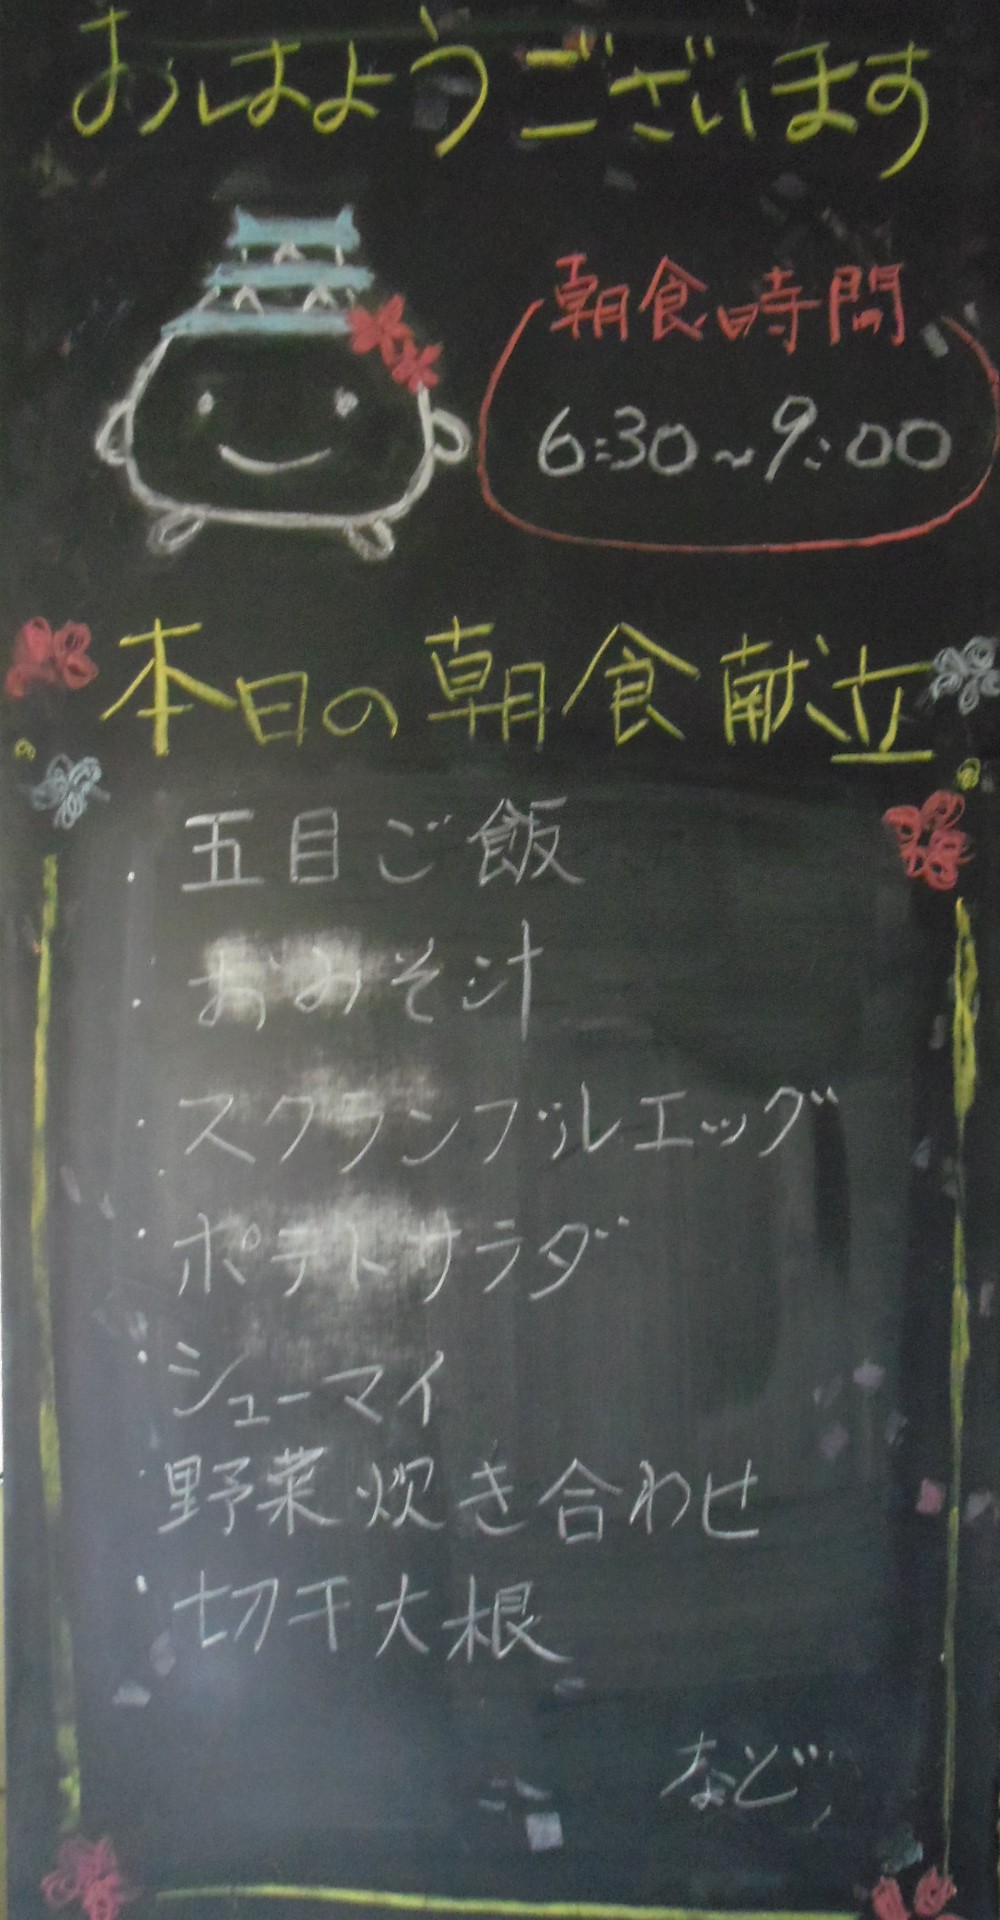 おはようございます
朝食時間
6:30~9:00
本日の朝食献立
・五目ご飯
・おみそ汁
・スクランブルエッグ
・ポテトサラダ
・シューマイ
・野菜炊き合わせ
・切干大根
など